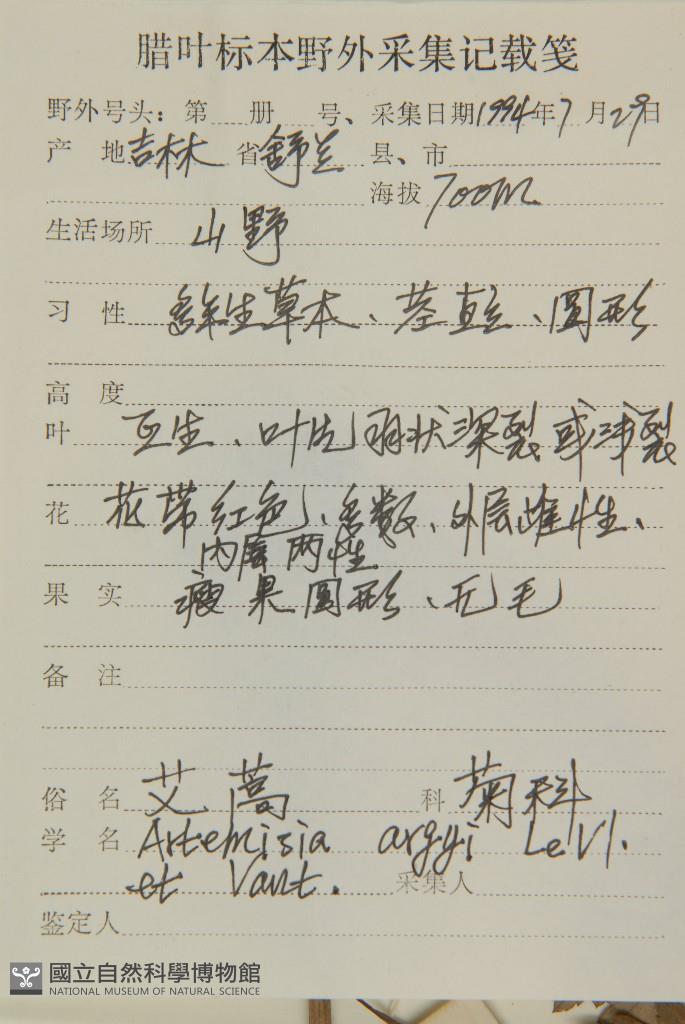 腊叶标本野外采集记载笺
野外号头：第 册 号、采集日期1994年7月29日
产 地 吉林 省 舒兰 县、市
海拔 700m
生活场所 山野
习 性 多年生草本、茎直立、圆形
高 度
叶 互生、叶片羽状深裂或浅裂
花 花带红色、多数、外层雌性、
内层两性
果 实 瘦果圆形、无毛
备 注
俗 名 艾蒿 科 菊科
学 名 Artemisia argyi Levl.
et Vant. 采集人
鉴定人
國立自然科學博物館
NATIONAL MUSEUM OF NATURAL SCIENCE